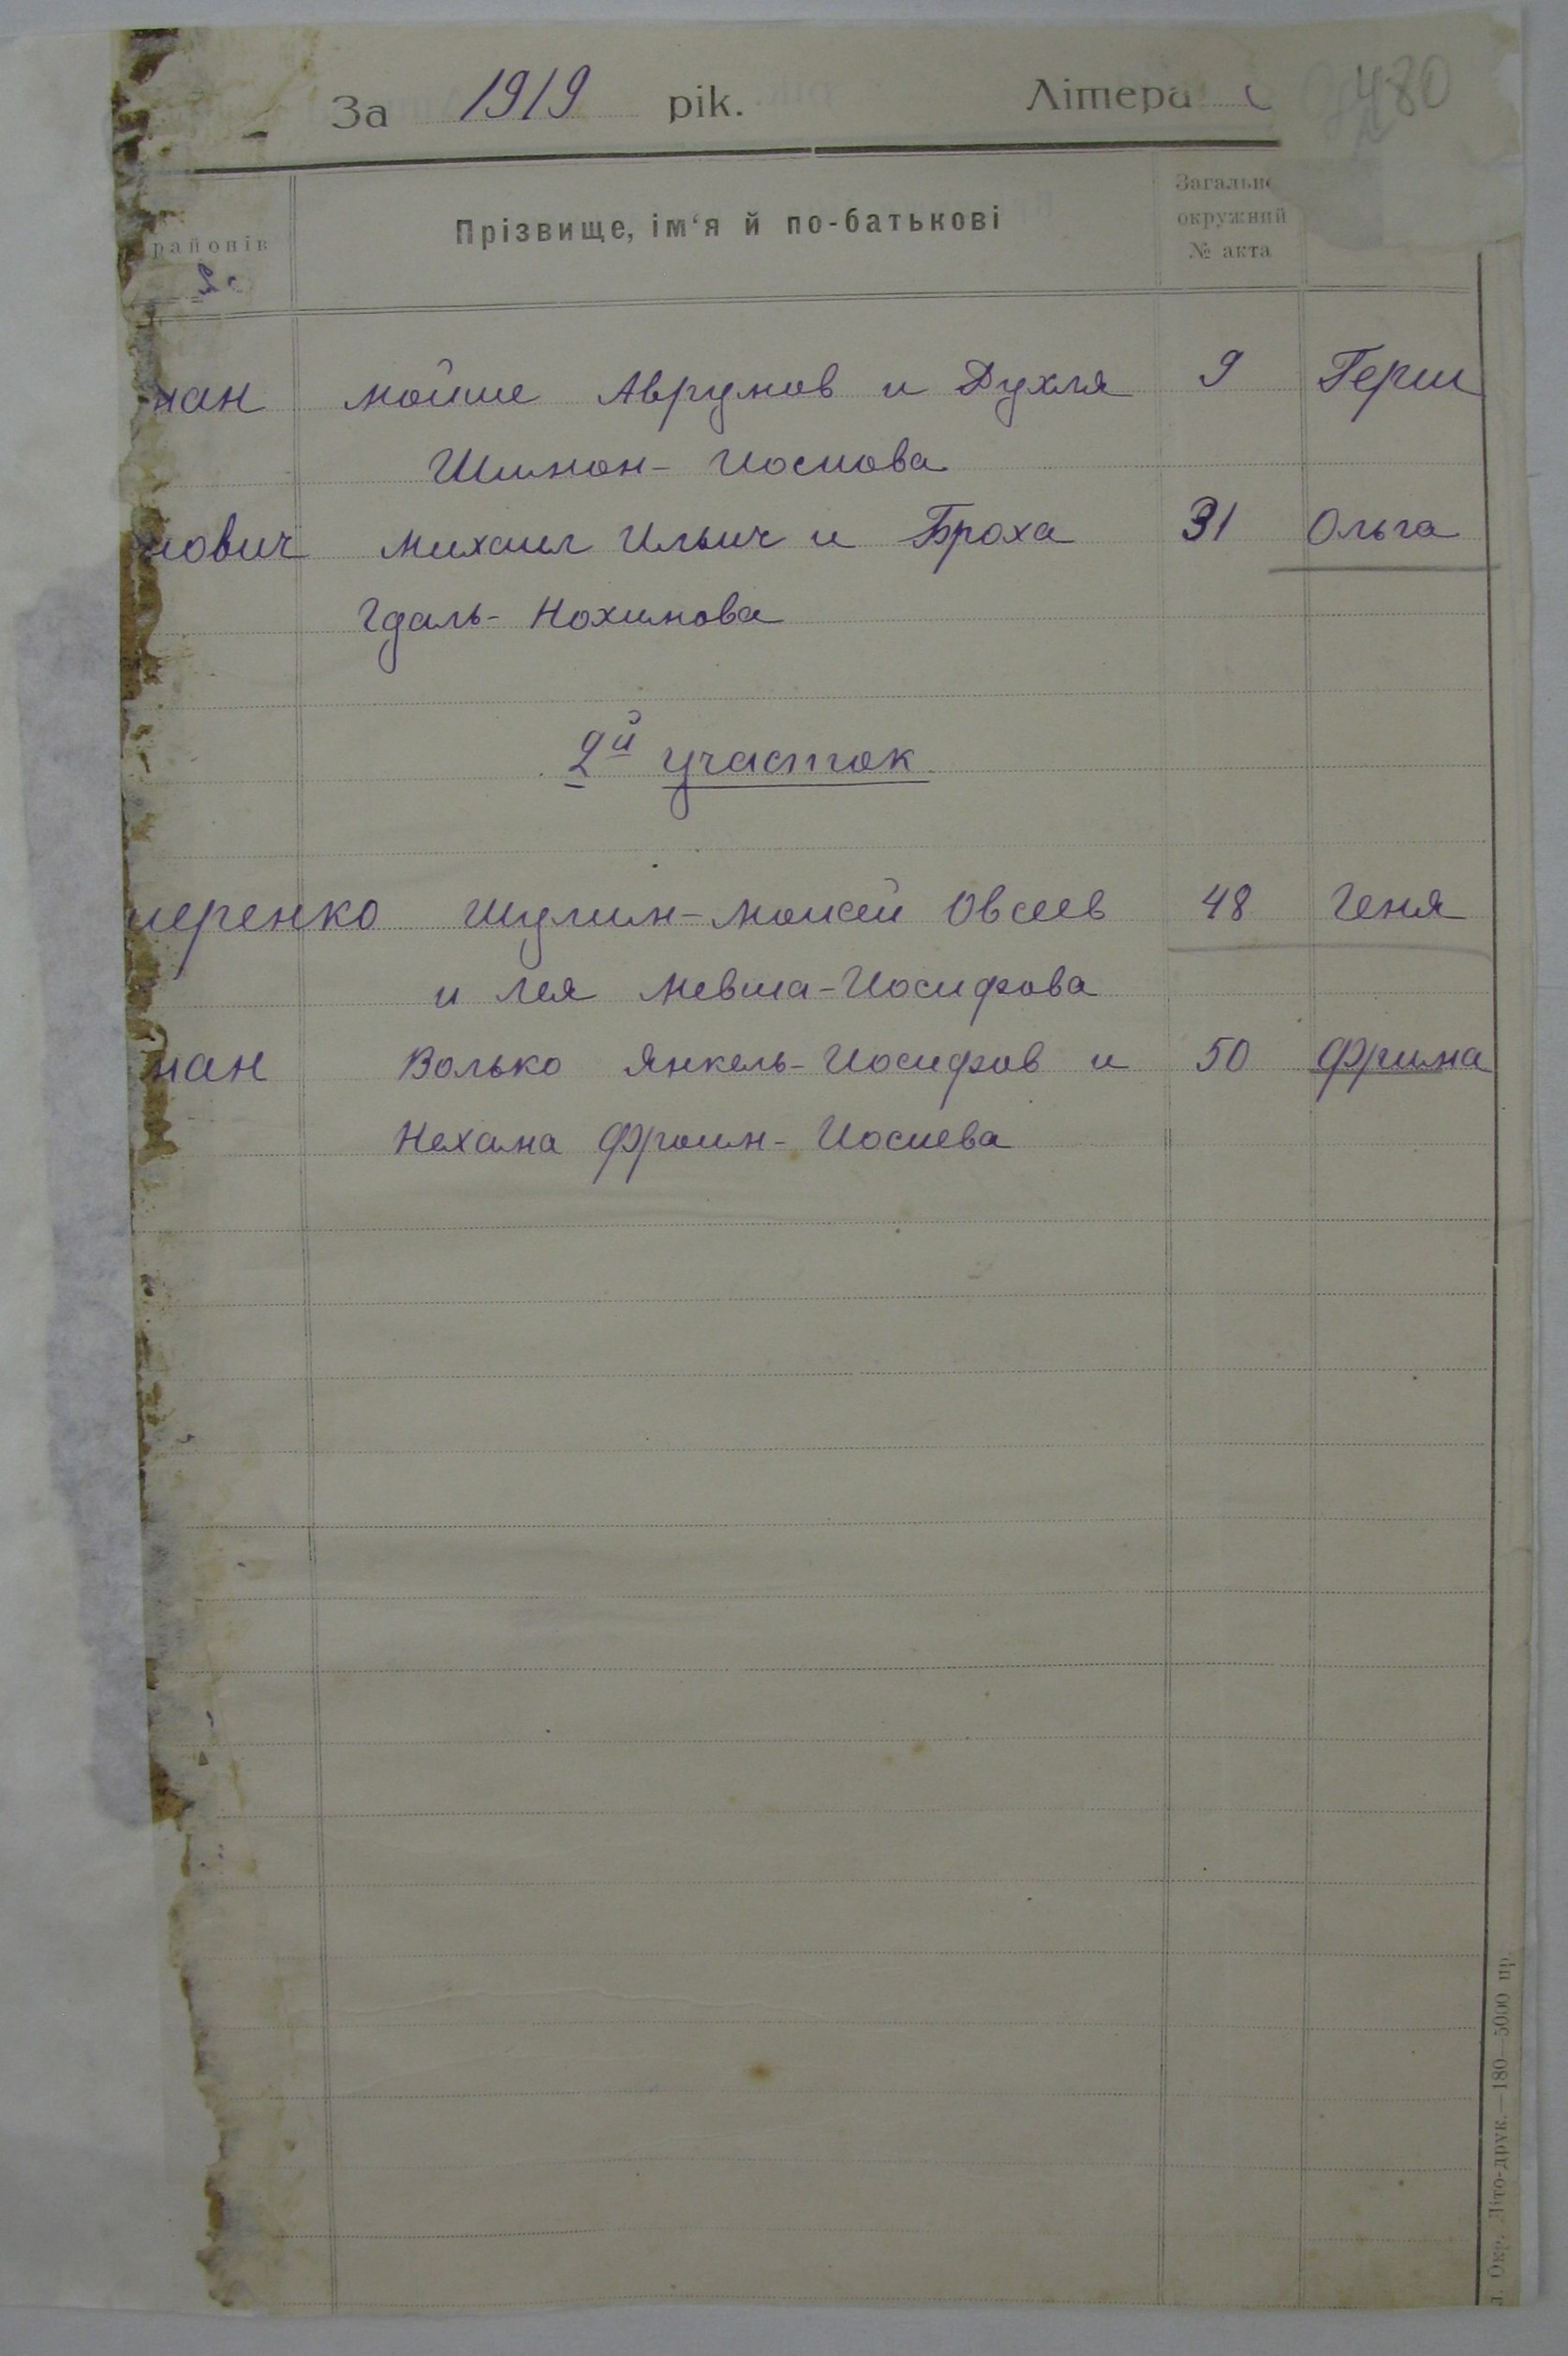 За 1919 рік. Літера
480
районів
Прізвище, ім‘я й по-батькові
Загальне
окружний
№ акта
ман Мойше Аврумов и Духля 9 Герш
Шимон-Иосиова
мович Михаил Ильич и Броха 31 Ольга
Гдаль-Нохимова
2й участок
черенко Шулим-Моисей Овсеев 48 Геня
и Лея Мевша-Иосифова
ман Волько Янкель-Иосифов и 50 Фрима
Нехама Фроим-Иосиева
Окр. Літо-друк.—180—5000 пр.